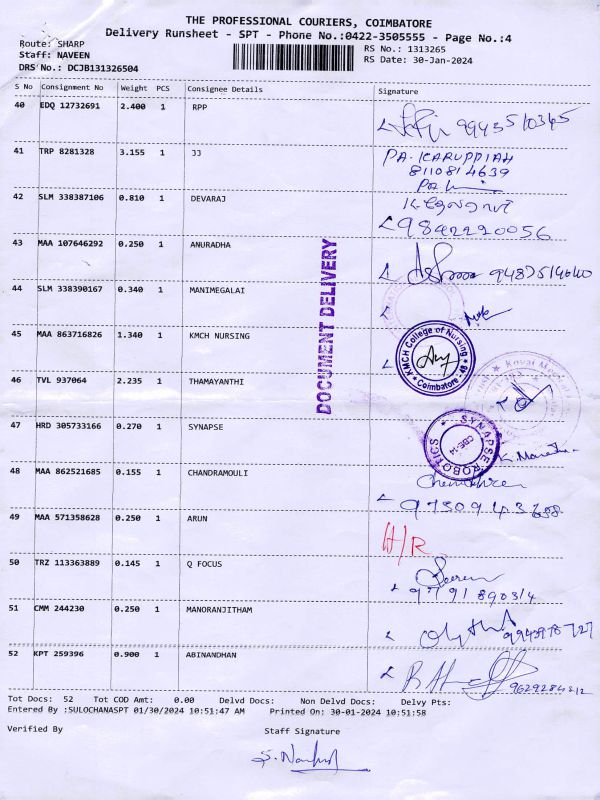 THE PROFESSIONAL COURIERS, COIMBATORE
Delivery Runsheet - SPT - Phone No.:0422-3505555 - Page No.:4
Route: SHARP
Staff: NAVEEN
DRS No.: DCJB131326504
RS No.: 1313265
RS Date: 30-Jan-2024
S No Consignment No Weight PCS Consignee Details Signature
40 EDQ 12732691 2.400 1 RPP
41 TRP 8281328 3.155 1 JJ PA. KARUPPIAH
8110814639
42 SLM 338387106 0.810 1 DEVARAJ
9842220056
43 MAA 107646292 0.250 1 ANURADHA
44 SLM 338390167 0.340 1 MANIMEGALAI
45 MAA 863716826 1.340 1 KMCH NURSING
KMCH College of Nursing
Coimbatore - 48
46 TVL 937064 2.235 1 THAMAYANTHI
47 HRD 305733166 0.270 1 SYNAPSE
SYNAPSE ROBOTICS
CBE-14
48 MAA 862521685 0.155 1 CHANDRAMOULI
49 MAA 571358628 0.250 1 ARUN H/R
50 TRZ 113363889 0.145 1 Q FOCUS
9791890314
51 CMM 244230 0.250 1 MANORANJITHAM
52 KPT 259396 0.900 1 ABINANDHAN
DOCUMENT DELIVERY
Tot Docs: 52 Tot COD Amt: 0.00 Delvd Docs: Non Delvd Docs: Delvy Pts:
Entered By :SULOCHANASPT 01/30/2024 10:51:47 AM Printed On: 30-01-2024 10:51:58
Verified By Staff Signature